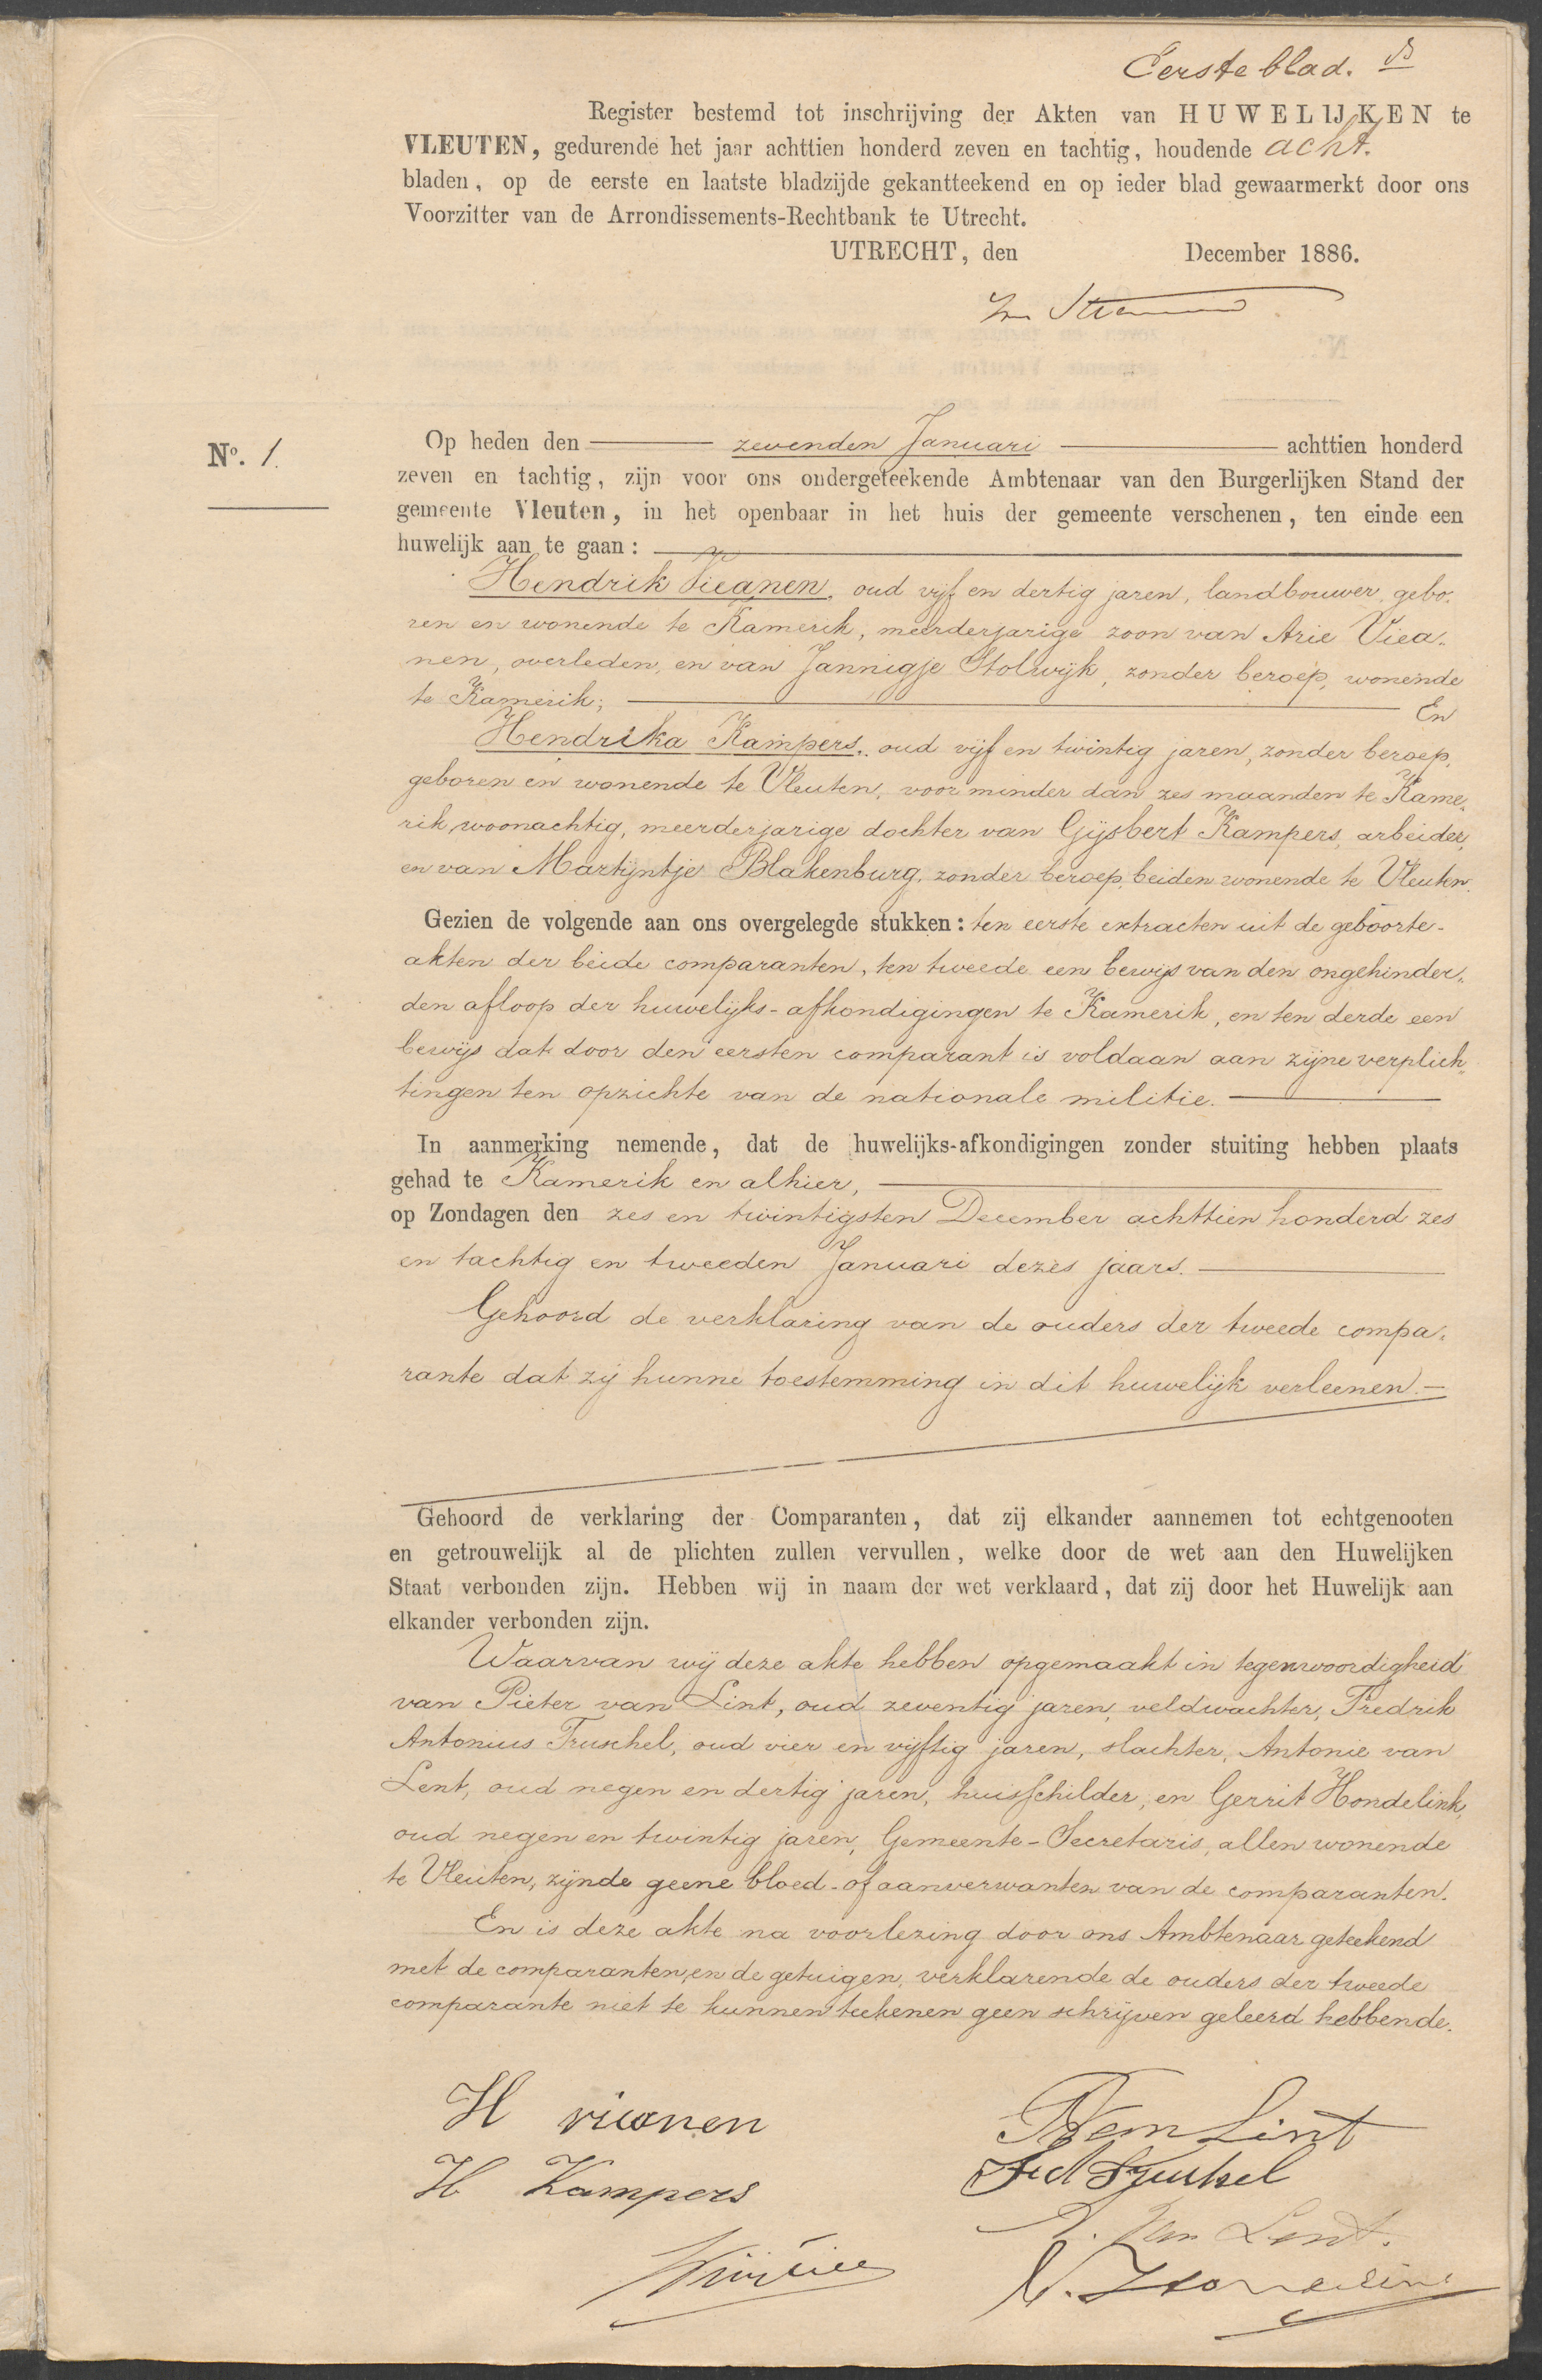 Eerste blad.
Register bestemd tot inschrijving der Akten van HUWELIJKEN te
VLEUTEN, gedurende het jaar achttien honderd zeven en tachtig, houdende acht.
bladen, op de eerste en laatste bladzijde gekantteekend en op ieder blad gewaarmerkt door ons
Voorzitter van de Arrondissements-Rechtbank te Utrecht.
UTRECHT, den December 1886.
No. 1.
Op heden den zevenden Januari achttien honderd
zeven en tachtig, zijn voor ons ondergeteekende Ambtenaar van den Burgerlijken Stand der
gemeente Vleuten, in het openbaar in het huis der gemeente verschenen, ten einde een
huwelijk aan te gaan:
Hendrik Vieanen, oud vijf en dertig jaren, landbouwer, gebo-
ren en wonende te Kamerik, meerderjarige zoon van Arie Viea-
nen, overleden, en van Jannigje Stolwijk, zonder beroep, wonende
te Kamerik; En
Hendrika Kampers, oud vijf en twintig jaren, zonder beroep,
geboren en wonende te Vleuten, voor minder dan zes maanden te Kame-
rik woonachtig, meerderjarige dochter van Gijsbert Kampers, arbeider,
en van Martijntje Blakenburg, zonder beroep, beiden wonende te Vleuten.
Gezien de volgende aan ons overgelegde stukken: ten eerste extracten uit de geboorte-
akten der beide comparanten, ten tweede een bewijs van den ongehinder-
den afloop der huwelijks-afkondigingen te Kamerik, en ten derde een
bewijs dat door den eersten comparant is voldaan aan zijne verplich-
tingen ten opzichte van de nationale militie.
In aanmerking nemende, dat de huwelijks-afkondigingen zonder stuiting hebben plaats
gehad te Kamerik en alhier,
op Zondagen den zes en twintigsten December achttien honderd zes
en tachtig en tweeden Januari dezes jaars.
Gehoord de verklaring van de ouders der tweede compa-
rante dat zij hunne toestemming in dit huwelijk verleenen.
Gehoord de verklaring der Comparanten, dat zij elkander aannemen tot echtgenooten
en getrouwelijk al de plichten zullen vervullen, welke door de wet aan den Huwelijken
Staat verbonden zijn. Hebben wij in naam der wet verklaard, dat zij door het Huwelijk aan
elkander verbonden zijn.
Waarvan wij deze akte hebben opgemaakt in tegenwoordigheid
van Pieter van Lint, oud zeventig jaren, veldwachter, Fredrik
Antonius Truschel, oud vier en vijftig jaren, slachter, Antonie van
Lent, oud negen en dertig jaren, huisschilder, en Gerrit Hondelink,
oud negen en twintig jaren, Gemeente-Secretaris, allen wonende
te Vleuten, zijnde geene bloed- of aanverwanten van de comparanten.
En is deze akte na voorlezing door ons Ambtenaar geteekend
met de comparanten, en de getuigen, verklarende de ouders der tweede
comparante niet te kunnen teekenen geen schrijven geleerd hebbende.
H vieanen
P van Lint
H Kampers
Fr A Truschel
A. van Lent.
G. Hondelink